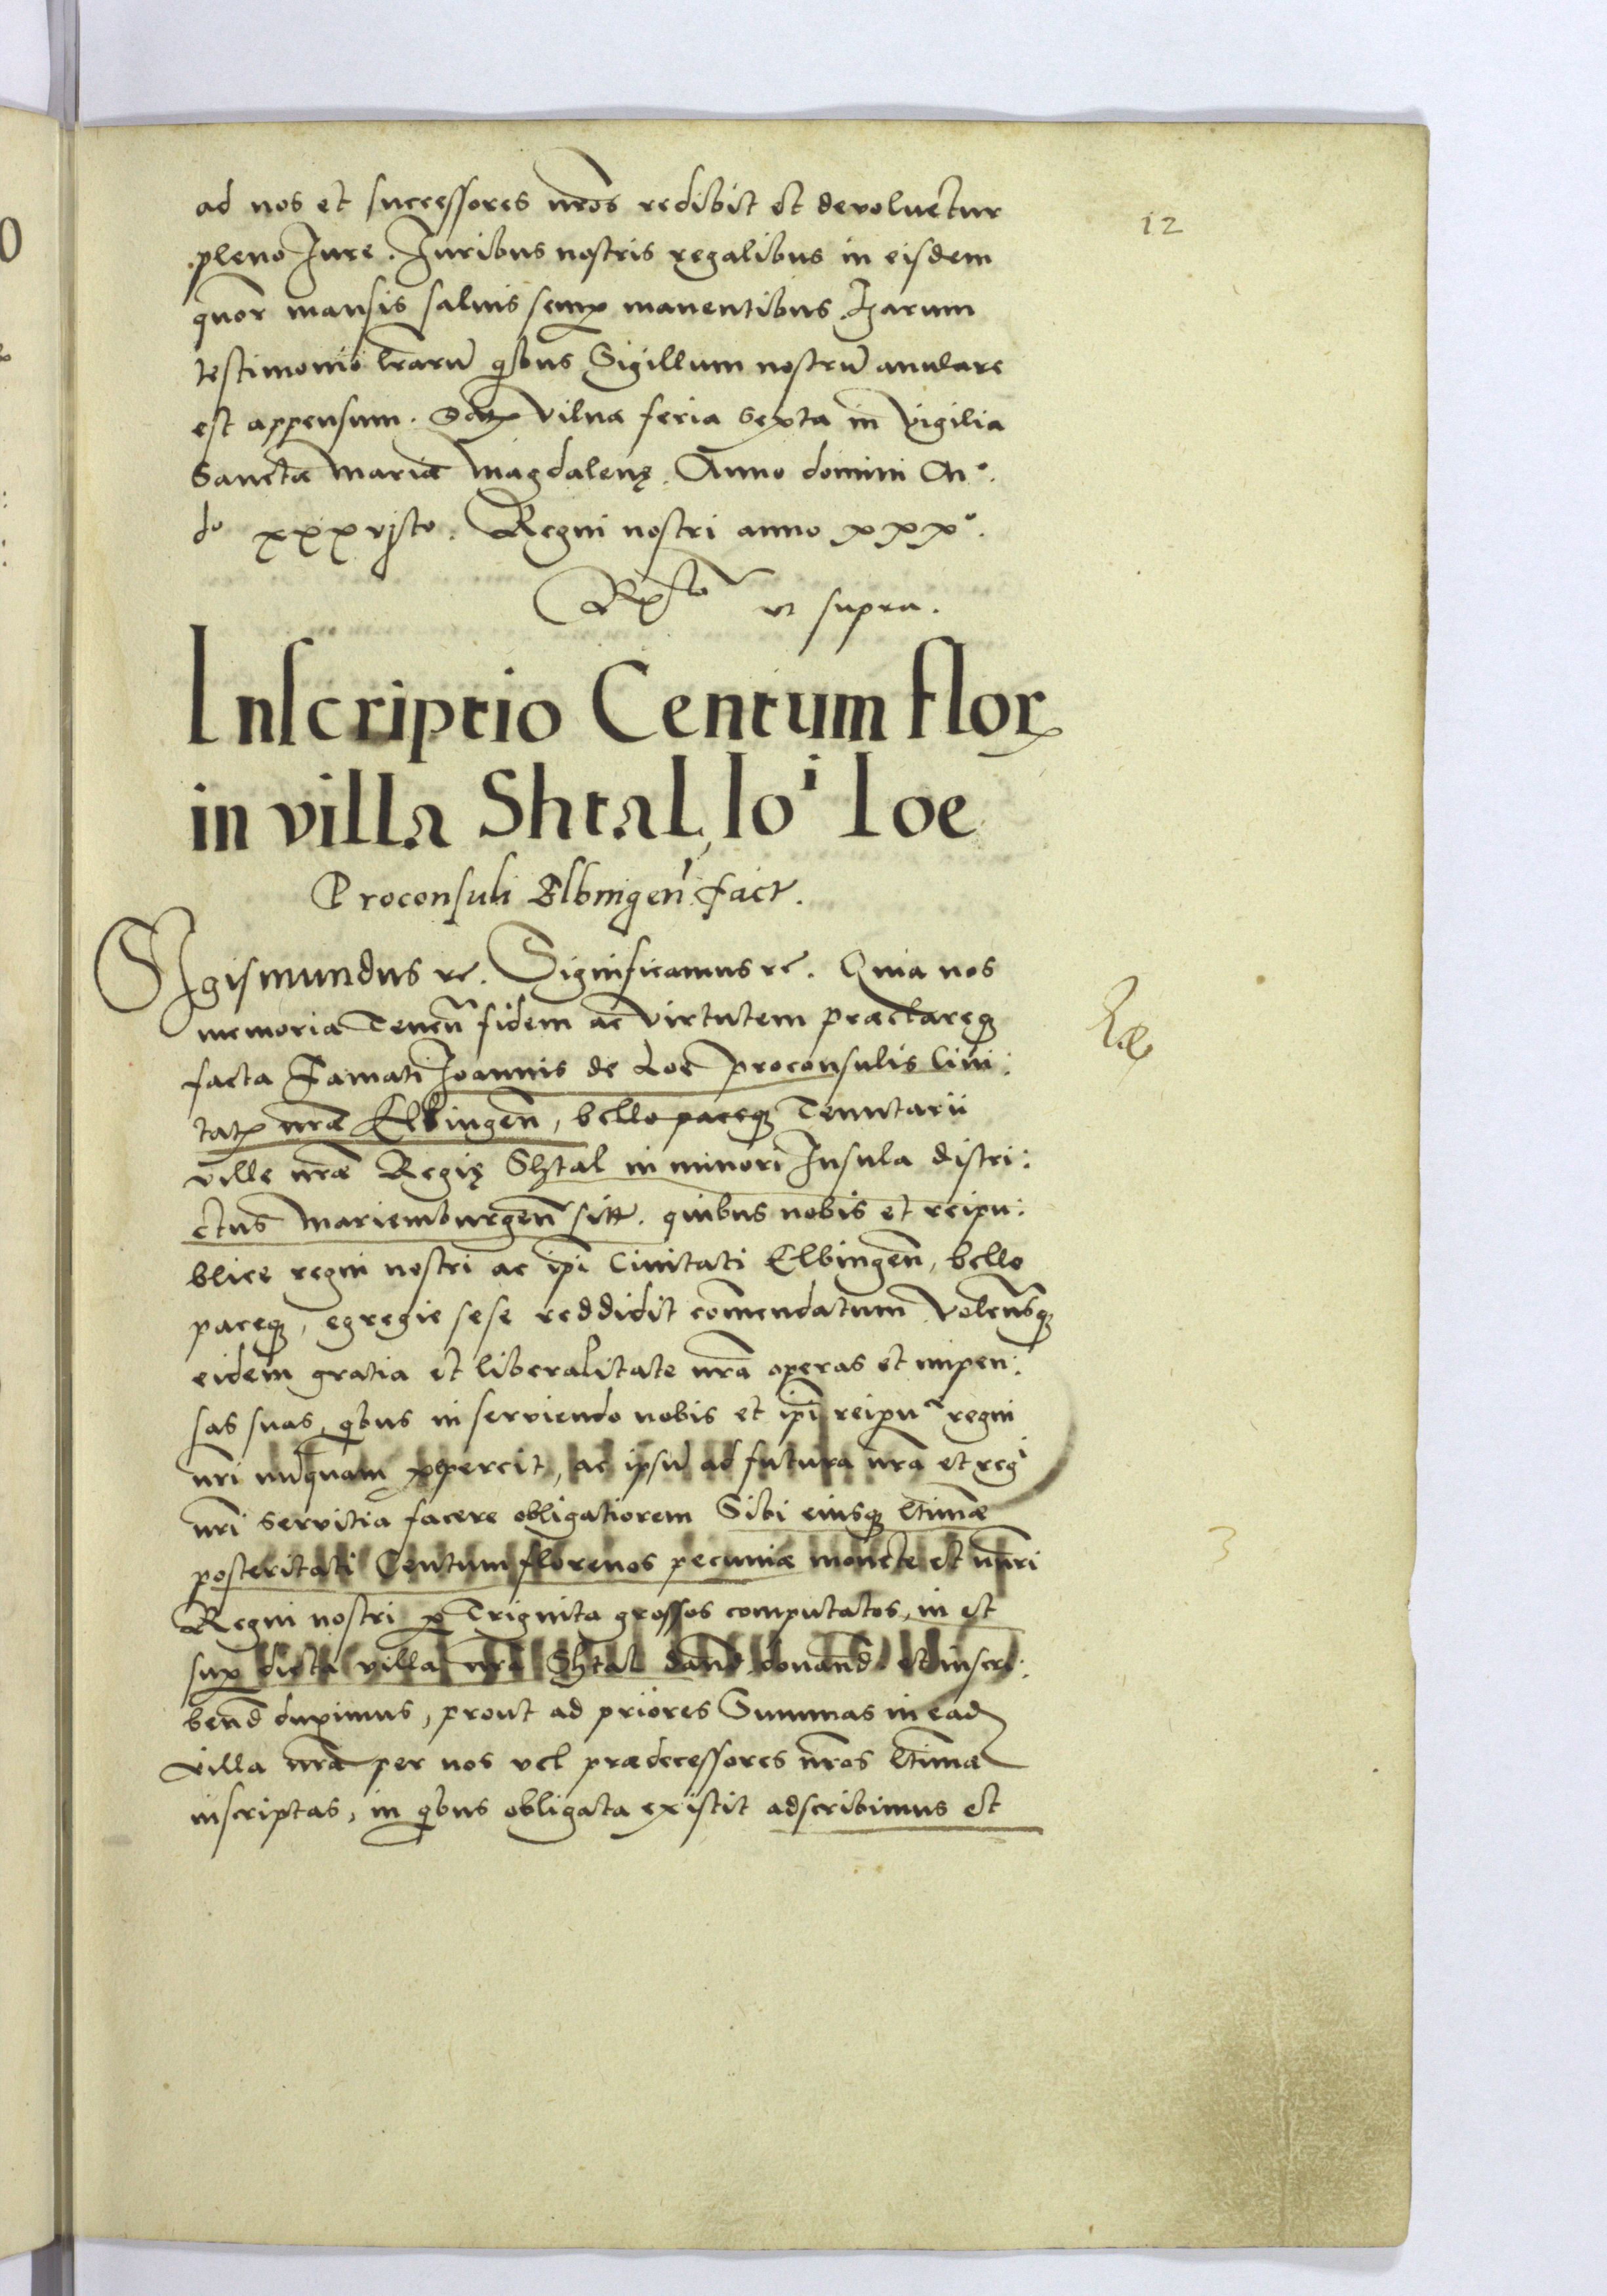 ad nos et successores nr̄os redibit et devoluetur
12
pleno Jure. Juribus nostris regalibus in eisdem
quor mansis saluis semp manentibus. Harum
testimonio lr̄arū qibus Sigillum nostrū anulare
est appensum. Dat Vilnæ feria sexta in Vigilia
Sanctæ Mariæ Magdalenę. Anno domini M°.
d° xxxvjto. Regni nostri anno xxx°.
Rcto ut supra.
Inscriptio Centum flor
in villa Shtal, Io¹ Loe
Proconsuli Elbingen̄ fact.
SIgismundus rc. Significamus rc. Quia nos
memoria Tenen̄ fidem ac Virtutem præclareq
facta Famati Joannis de Loe proconsulis Civi:
tat nr̄æ Elbingen̄, bello paceq Tenutarii
ville nr̄æ Regię Shtal in minori Insula distri:
ctus Mariemburgen̄ sitt. quibus nobis et reipu:
blice regni nostri ac ip̄i Civitati Elbingen̄, bello
paceq, egregie sese reddidit com̄endatum Volen̄sq
eidem gratia et liberalitate nr̄a operas et impen:
sas suas, qibus in serviendo nobis et ip̄i reipu regni
nr̄i nunquam pepercit, ac ipsū ad futura nr̄a et reg¹
nr̄i servitia facere obligatiorem Sibi eiusq ltimæ
posteritati Centum florenos pecuniæ monetæ et nūri
Regni nostri p Triginta grossos computatos, in et
3
sup dicta villa nr̄a Shtal dand donand et inscri:
bend duximus, prout ad priores Summas in ead
villa nr̄a per nos vel prædecessores nr̄os ltimæ
inscriptas, in qibus obligata existit adscribimus et